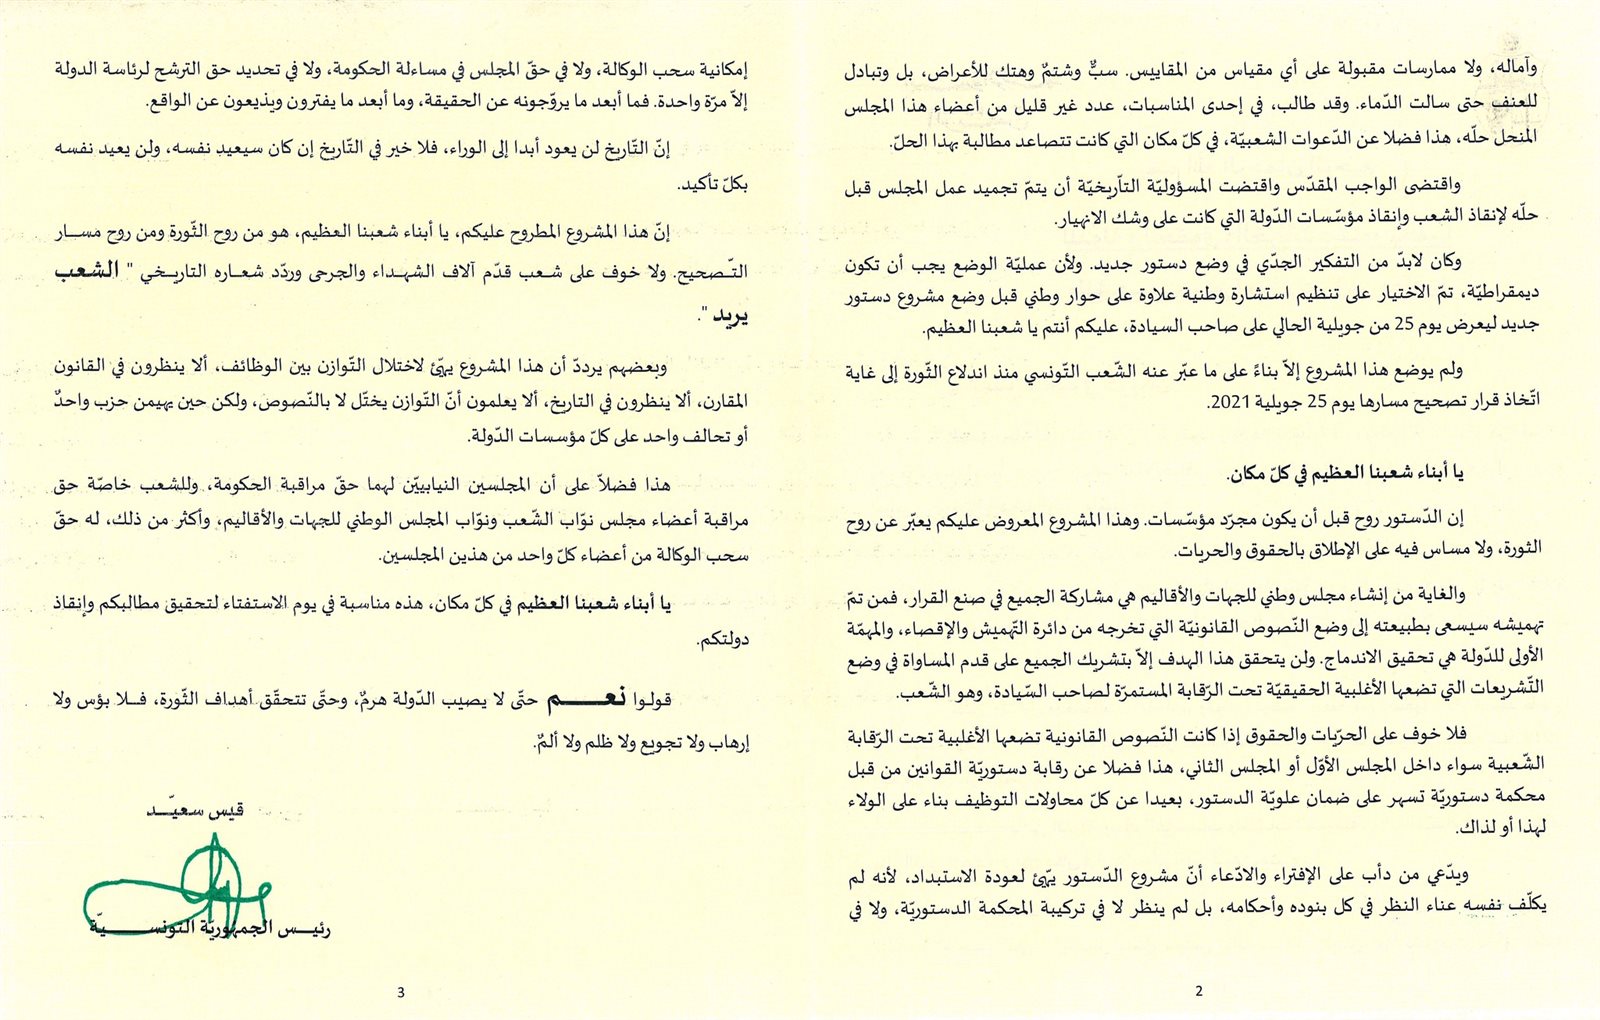 وآماله، ولا ممارسات مقبولة على أي مقياس من المقاييس. سبٌّ وشتمٌ وهتك للأعراض، بل وتبادل
للعنف حتى سالت الدّماء. وقد طالب، في إحدى المناسبات، عدد غير قليل من أعضاء هذا المجلس
المنحل حلّه، هذا فضلا عن الدّعوات الشعبيّة، في كلّ مكان التي كانت تتصاعد مطالبة بهذا الحلّ.
واقتضى الواجب المقدّس واقتضت المسؤوليّة التاّريخيّة أن يتمّ تجميد عمل المجلس قبل
حلّه لإنقاذ الشعب وإنقاذ مؤسّسات الدّولة التي كانت على وشك الانهيار.
وكان لابدّ من التفكير الجدّي في وضع دستور جديد. ولأن عمليّة الوضع يجب أن تكون
ديمقراطيّة، تمّ الاختيار على تنظيم استشارة وطنية علاوة على حوار وطني قبل وضع مشروع دستور
جديد ليعرض يوم 25 من جويلية الحالي على صاحب السيادة، عليكم أنتم يا شعبنا العظيم.
ولم يوضع هذا المشروع إلاّ بناءً على ما عبّر عنه الشّعب التّونسي منذ اندلاع الثّورة إلى غاية
اتّخاذ قرار تصحيح مسارها يوم 25 جويلية 2021.
يا أبناء شعبنا العظيم في كلّ مكان.
إن الدّستور روح قبل أن يكون مجرّد مؤسّسات. وهذا المشروع المعروض عليكم يعبّر عن روح
الثورة، ولا مساس فيه على الإطلاق بالحقوق والحريات.
والغاية من إنشاء مجلس وطني للجهات والأقاليم هي مشاركة الجميع في صنع القرار، فمن تمّ
تهميشه سيسعى بطبيعته إلى وضع النّصوص القانونيّة التي تخرجه من دائرة التّهميش والإقصاء، والمهمّة
الأولى للدّولة هي تحقيق الاندماج. ولن يتحقق هذا الهدف إلاّ بتشريك الجميع على قدم المساواة في وضع
التّشريعات التي تضعها الأغلبية الحقيقيّة تحت الرّقابة المستمرّة لصاحب السّيادة، وهو الشّعب.
فلا خوف على الحرّيات والحقوق إذا كانت النّصوص القانونية تضعها الأغلبية تحت الرّقابة
الشّعبية سواء داخل المجلس الأوّل أو المجلس الثاني، هذا فضلا عن رقابة دستوريّة القوانين من قبل
محكمة دستوريّة تسهر على ضمان علويّة الدستور، بعيدا عن كلّ محاولات التوظيف بناء على الولاء
لهذا أو لذاك.
ويدّعي من دأب على الإفتراء والادّعاء أنّ مشروع الدّستور يهّئ لعودة الاستبداد، لأنه لم
يكلّف نفسه عناء النظر في كل بنوده وأحكامه، بل لم ينظر لا في تركيبة المحكمة الدستوريّة، ولا في
2
إمكانية سحب الوكالة، ولا في حقّ المجلس في مساءلة الحكومة، ولا في تحديد حق الترشح لرئاسة الدولة
إلاّ مرّة واحدة. فما أبعد ما يروّجونه عن الحقيقة، وما أبعد ما يفترون ويذيعون عن الواقع.
إنّ التّاريخ لن يعود أبدا إلى الوراء، فلا خير في التّاريخ إن كان سيعيد نفسه، ولن يعيد نفسه
بكلّ تأكيد.
إنّ هذا المشروع المطروح عليكم، يا أبناء شعبنا العظيم، هو من روح الثّورة ومن روح مسـار
التّصحيح. ولا خوف على شعب قدّم آلاف الشهداء والجرحى وردّد شعاره التاريخي " الشعب
يريد ".
وبعضهم يرددّ أن هذا المشروع يهّئ لاختلال التّوازن بين الوظائف، ألا ينظرون في القانون
المقارن، ألا ينظرون في التاريخ، ألا يعلمون أنّ التّوازن يختّل لا بالنّصوص، ولكن حين يهيمن حزب واحدٌ
أو تحالف واحد على كلّ مؤسسات الدّولة.
هذا فضلاً على أن المجلسين النيابييّن لهما حقّ مراقبة الحكومة، وللشعب خاصّة حق
مراقبة أعضاء مجلس نوّاب الشّعب ونوّاب المجلس الوطني للجهات والأقاليم، وأكثر من ذلك، له حقّ
سحب الوكالة من أعضاء كلّ واحد من هذين المجلسين.
يا أبناء شعبنا العظيم في كلّ مكان، هذه مناسبة في يوم الاستفتاء لتحقيق مطالبكم وإنقاذ
دولتكم.
قولوا نعـــم حتّى لا يصيب الدّولة هرمٌ، وحتّى تتحقّق أهداف الثّورة، فـلا بؤس ولا
إرهاب ولا تجويع ولا ظلم ولا ألمٌ.
قيس سعيّـد
رئيـس الجمهوريّة التونســـيّة
3